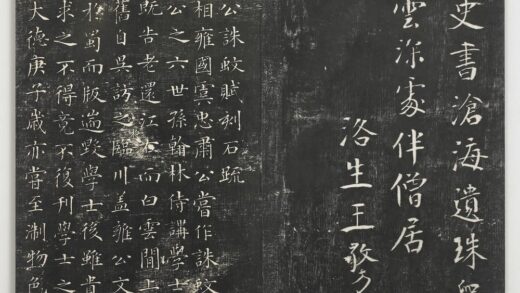 史書滄海遺珠
雲深處伴僧居
洛生王敬方
公誅蚊賦刻石疏
相雍國虞忠肅公嘗作誅蚊
公之六世孫翰林侍講學士
既告老還江右而白雲閒上
舊自吳訪之臨川蓋雍公文
於蜀而版遄毀學士後雖貴
求之不得竟不復刊學士之
大德庚子歲亦嘗至淛物色